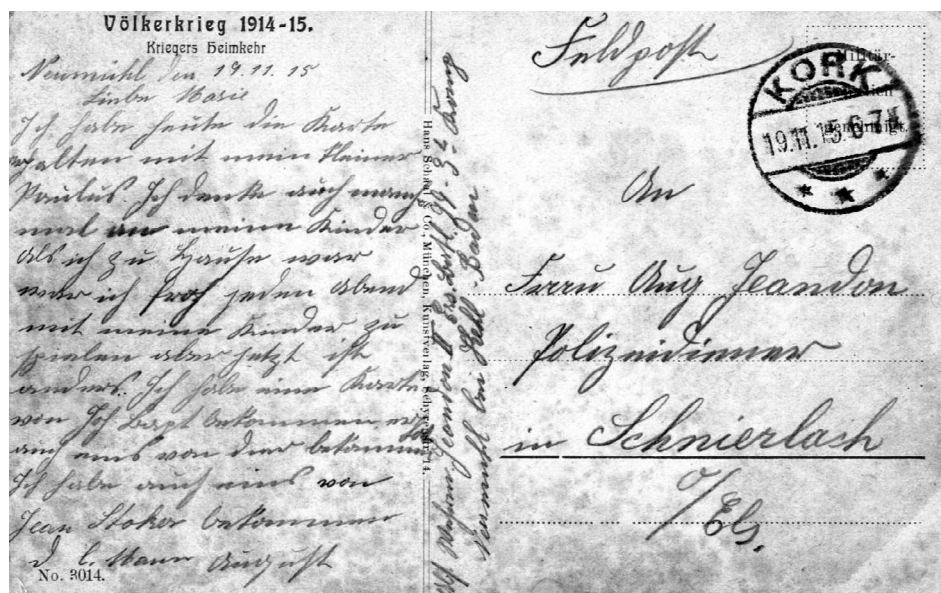 Völkerkrieg 1914-15.
Kriegers Heimkehr
Neumühl den 19.11.15
Liebe Marie
Ich habe heute die Karte
erhalten mit mein kleiner
Paulus. Ich denke auch manch
mal an meine Kinder
als ich zu Hause war
war ich froh jeden Abend
mit meine Kinder zu
spielen aber jetzt ist
anders. Ich habe eine Karte
von Joh Bapt bekommen er hat
auch eins von dir bekommen
Ich habe auch eins von
Jean Stoker bekommen
d. l. Mann August
No. 3014.
Hans Schaal & Co., München, Kunstverlag,
Jeandon II Ers. Batl. 99 - 3t Komp
Neumühl bei Kehl - Baden
Feldpost
KORK
19.11.15.6-7N
Militär-
An
Frau Aug Jeandon
Polizeidiener
in Schnierlach
O/Els.